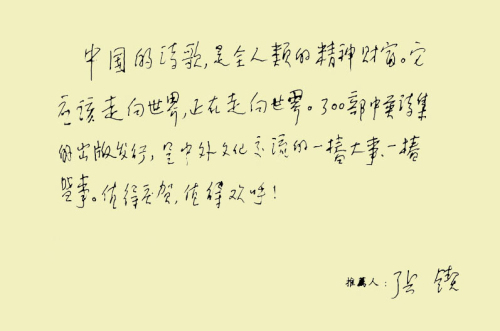 中国的诗歌,是全人類的精神财富。它
应该走向世界,正在走向世界。300部中英诗集
的出版发行,是中外文化交流的一樁大事、一樁
盛事。值得庆贺,值得欢呼!
推薦人:张锲